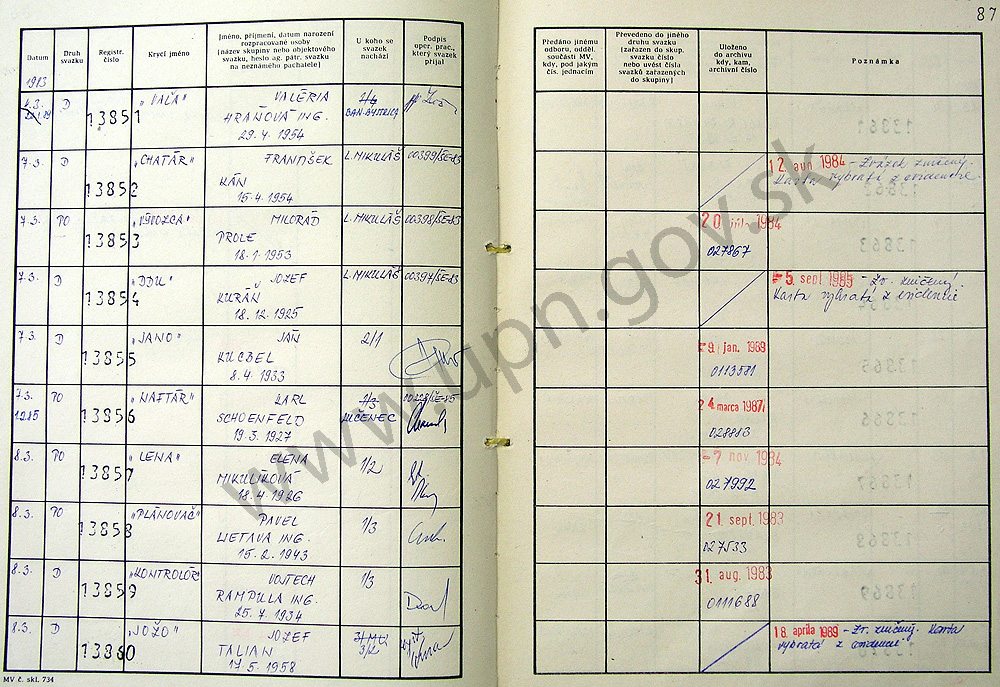 87
Datum
Druh svazku
Registr. číslo
Krycí jméno
Jméno, příjmení, datum narození
rozpracované osoby
[název skupiny nebo objektového
svazku, heslo ag. pátr. svazku
na neznámého pachatele]
U koho se
svazek
nachází
Podpis
oper. prac.,
který svazek
přijal
Předáno jinému
odboru, odděl.
součásti MV,
kdy, pod jakým
čís. jednacím
Převedeno do jiného
druhu svazku
[zařazen do skup.
svazku číslo
nebo uvést čísla
svazků zařazených
do skupiny]
Uloženo
do archivu
kdy, kam,
archivní číslo
Poznámka
1983
7.3. D 13851 "VAĽA" VALÉRIA
HRAŇOVÁ ING.
29.4.1954
2/4
BAN. BYSTRICA
7.3. D 13852 "CHATÁR" FRANTIŠEK L. MIKULÁŠ 00399/ŠE-83
KÁN
15.4.1954
12. aug 1984 - Zväzok zničený.
Karta vybratá z evidencie.
7.3. PO 13853 "VÝVOZCA" MILORÁD L. MIKULÁŠ 00398/ŠE-83
PROLE
18.1.1953
027867
7.3. D 13854 "DDU" JOZEF L. MIKULÁŠ 00397/ŠE-83
KURÁŇ
18.12.1925
5. sept 1985 - Zv. zničený.
Karta vybratá z evidencie
7.3. D 13855 "JANO" JÁN 2/1
KUCBEL
8.4.1933
9. jan. 1989
0113581
7.3. PO 13856 "NAFTÁR" KARL 1/3
1285 SCHOENFELD LUČENEC
19.3.1927
24 marca 1987
028883
8.3. PO 13857 "LENA" ELENA 1/2
MIKULÍKOVÁ
18.4.1926
-7 nov 1984
027992
8.3. PO 13858 "PLÁNOVAČ" PAVEL 1/3
LIETAVA ING.
15.2.1943
21. sept. 1983
027533
8.3. D 13859 "KONTROLÓR" VOJTECH 1/3
RAMPULA ING.
25.7.1934
31. aug. 1983
0111688
8.3. D 13860 "JOŽO" JOZEF
TALIAN
17.5.1958
18. apríla 1989 - Zv. zničený. Karta
vybratá z evidencie
MV č. skl. 734
www.upn.gov.sk